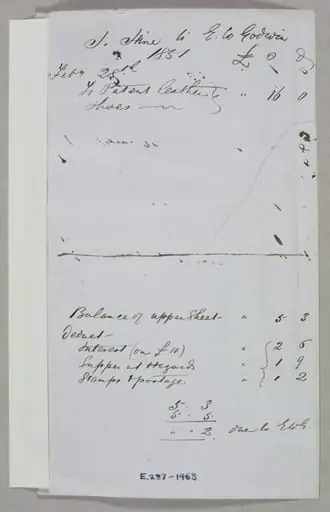 J. Hine to E. W. Godwin
1851 £ s d
Feby 28th
To Patent leather " 16 0
shoes
Balance of upper sheet " 5 3
Deduct
Interest (on £10) " 2 6
Supper at " 1 9
Stamps & postage " 1 2
5. 3
5. 5.
" " 2 due to EWG.
E.287-1963